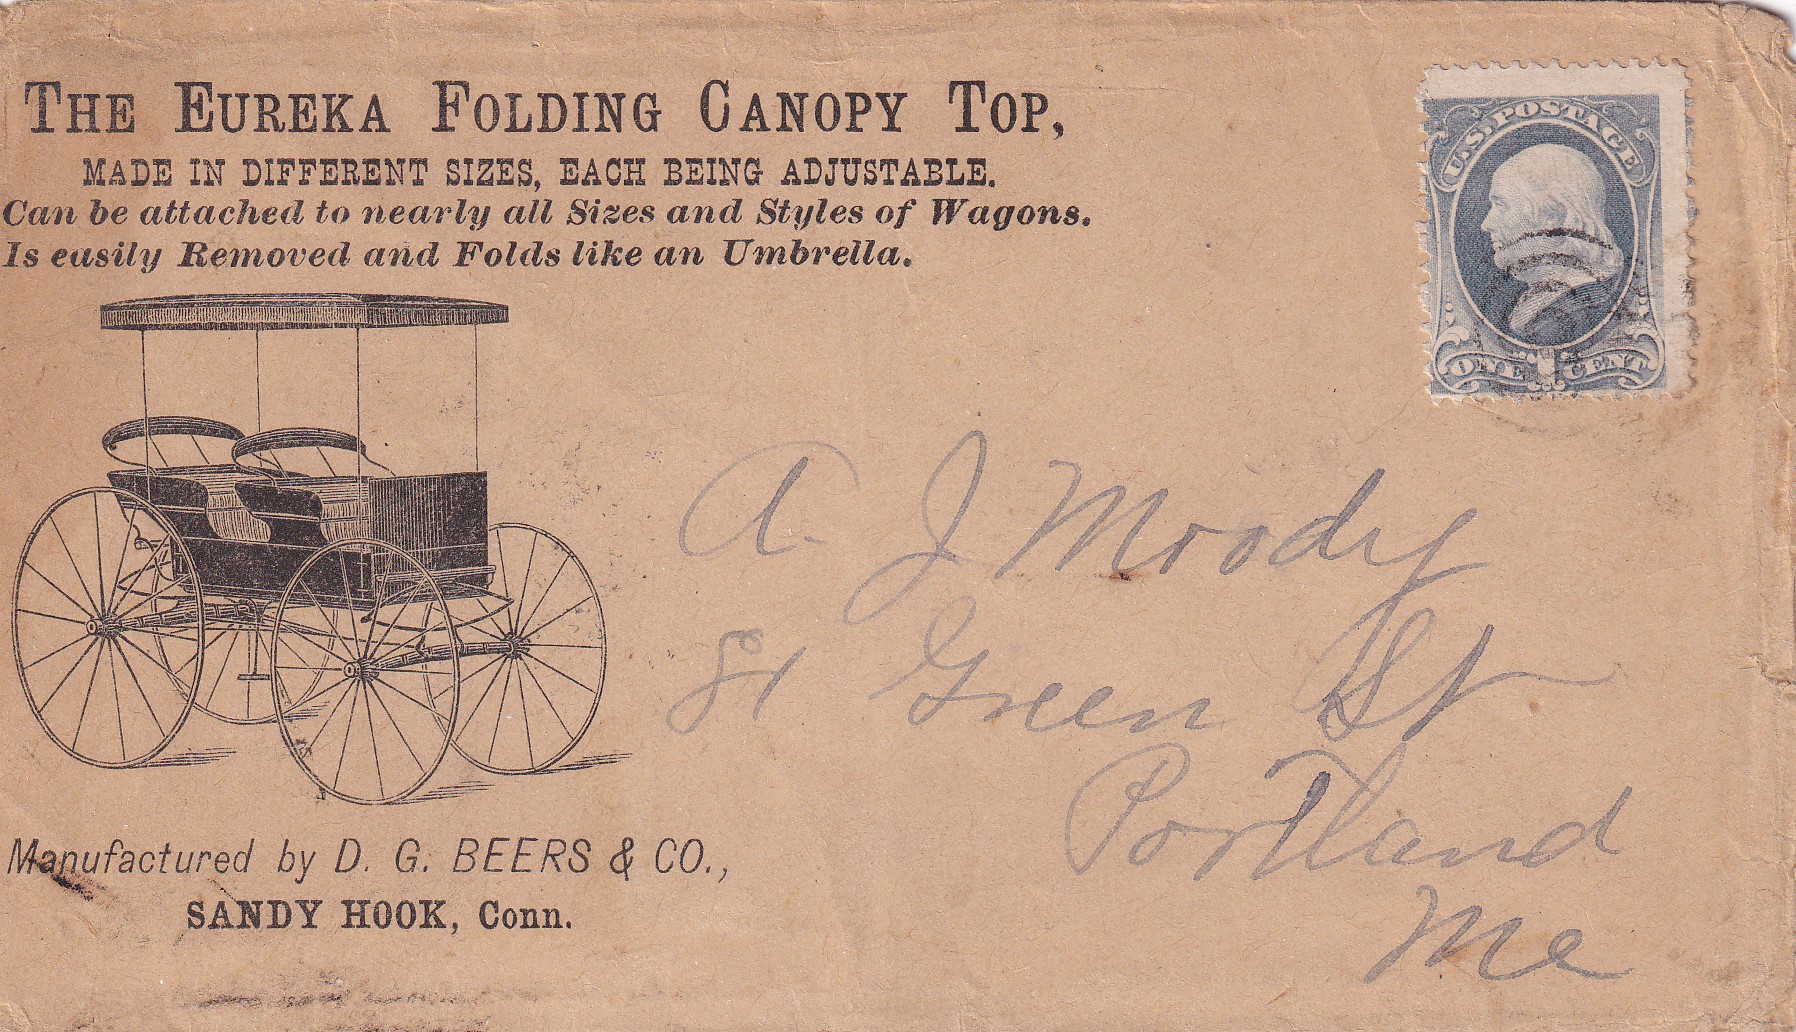 THE EUREKA FOLDING CANOPY TOP,
MADE IN DIFFERENT SIZES, EACH BEING ADJUSTABLE.
Can be attached to nearly all Sizes and Styles of Wagons.
Is easily Removed and Folds like an Umbrella.
U.S. POSTAGE
ONE 1 CENT
A. J Moody
81 Green St
Portland
Me
Manufactured by D. G. BEERS & CO.,
SANDY HOOK, Conn.